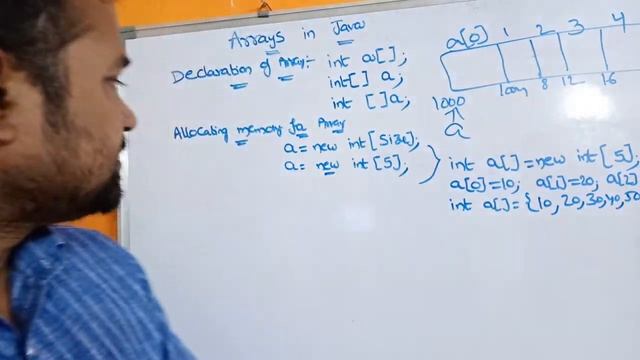 Arrays in Java
Declaration of Array:- int a[];
int[] a;
int []a;
Allocating memory for Array
a = new int[Size];
a = new int[5];
a[0] 1 2 3 4
1000 1004 8 12 16
a
int a[]=new int[5];
a[0]=10; a[1]=20; a[2]
int a[]={10,20,30,40,50